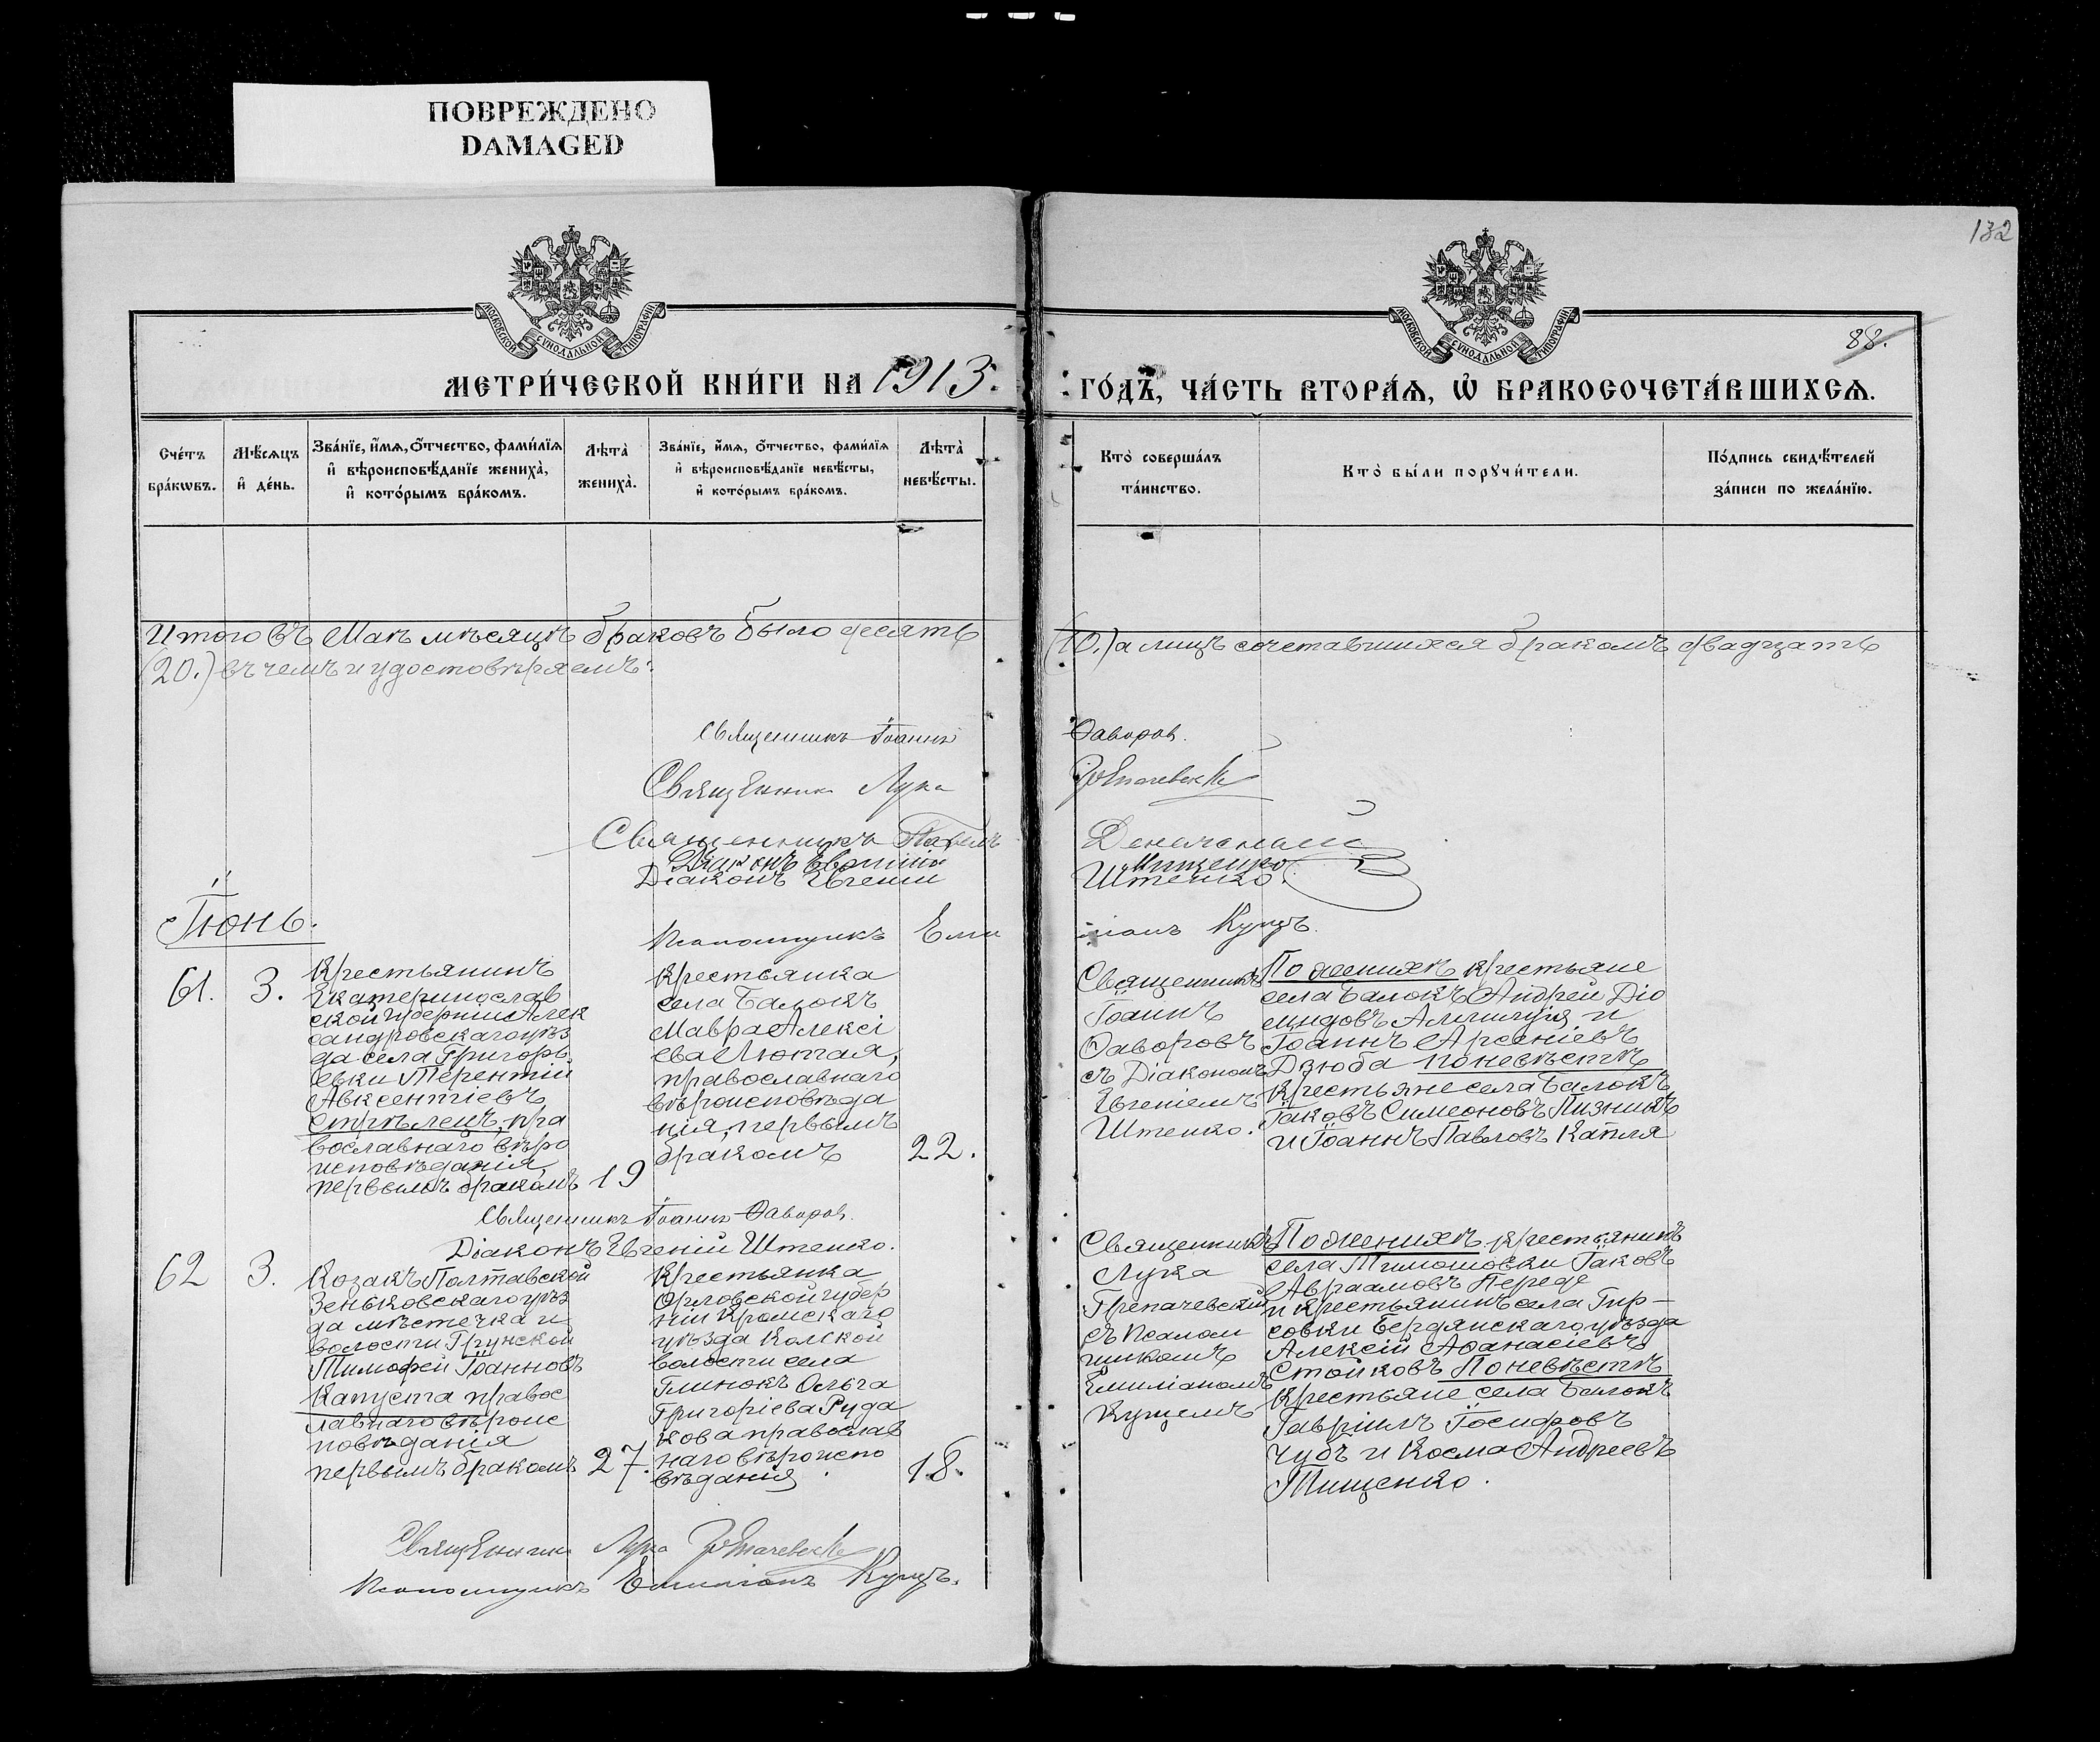 ПОВРЕЖДЕНО
DAMAGED
132
88.
МОСКОВСКОЙ СѴНОДАЛЬНОЙ ТИПОГРАФІИ
МОСКОВСКОЙ СѴНОДАЛЬНОЙ ТИПОГРАФІИ
МЕТРИ́ЧЕСКОЙ КНИ́ГИ НА 1913.
ГО́ДЪ, ЧА́СТЬ ВТОРА́Ѧ, Ѽ БРАКОСОЧЕТА́ВШИХСѦ.
Сче́тъ
бра́кѡвъ.
Мѣ́сѧцъ
и҆ де́нь.
Зва́нїе, и҆́мѧ, ѻ҆́тчество, фами́лїѧ
и҆ вѣроисповѣ́данїе жениха̀,
и҆ кото́рымъ бра́комъ.
Лѣ́та
жениха̀.
Зва́нїе, и҆́мѧ, ѻ҆́тчество, фами́лїѧ
и҆ вѣроисповѣ́данїе невѣ́сты,
и҆ кото́рымъ бра́комъ.
Лѣ́та
невѣ́сты.
Кто̀ соверша́лъ
та́инство.
Кто̀ бы́ли порꙋчи́тели.
По́дпись свидѣ́телей
за́писи по жела́нїю.
Итого въ Маѣ мѣсяцѣ браковъ было десять
(10.) а лицъ сочетавшихся бракомъ двадцать
(20.) въ чемъ и удостовѣряемъ:
Священникъ Іоаннъ Ѳаворов.
Священникъ Лука
Священникъ Павелъ
Діаконъ
Мищенко
Діаконъ Евгеній Штепко.
Псаломщикъ Емиліанъ Куцъ.
Іюнь.
61.
3.
Крестьянинъ
Екатеринослав
ской губерніи Алек
сандровскаго уѣз
да села Григорь
евки Терентій
Авксентіевъ
Стрѣлецъ, пра
вославнаго вѣро
исповѣданія,
первымъ бракомъ
19
Крестьянка
села Балокъ
Мавра Алексі
ева Лютая,
православнаго
вѣроисповѣда
нія, первымъ
бракомъ
22.
Священникъ
Іоаннъ
Ѳаворовъ
съ Діакономъ
Евгеніемъ
Штепко.
По женихѣ крестьяне
села Балокъ Андрей Діо
мидовъ и
Іоаннъ Арсеніевъ
Дзюба по невѣстѣ
крестьяне села Балокъ
Іаковъ Симеоновъ Пизникъ
и Іоаннъ Павловъ Капля
Священникъ Іоаннъ Ѳаворов.
Діаконъ Евгеній Штепко.
62
3.
Козакъ Полтавской
Зеньковскаго уѣз
да мѣстечка и
волости Грунской
Тимофей Іоанновъ
Капуста правос
лавнаго вѣроис
повѣданія
первымъ бракомъ
27.
Крестьянка
Орловской губер
ніи Кромскаго
уѣзда
волости села
Глинокъ Ольга
Григоріева Руда
кова православ
наго вѣроиспо
вѣданія.
18.
Священникъ
Лука
Трепачевскій
съ псалом
щикомъ
Емиліаномъ
Куцемъ
По женихѣ крестьянинъ
села Тимошовки Іаковъ
Авраамовъ
и крестьянинъ села Гир-
совки Бердянскаго уѣзда
Алексій Аѳанасіевъ
Стойковъ По невѣстѣ
крестьяне села Балокъ
Гавріилъ Іосифовъ
Чубъ и Косма Андреевъ
Тищенко.
Священник Лука
Псаломщикъ Емиліанъ Куцъ.